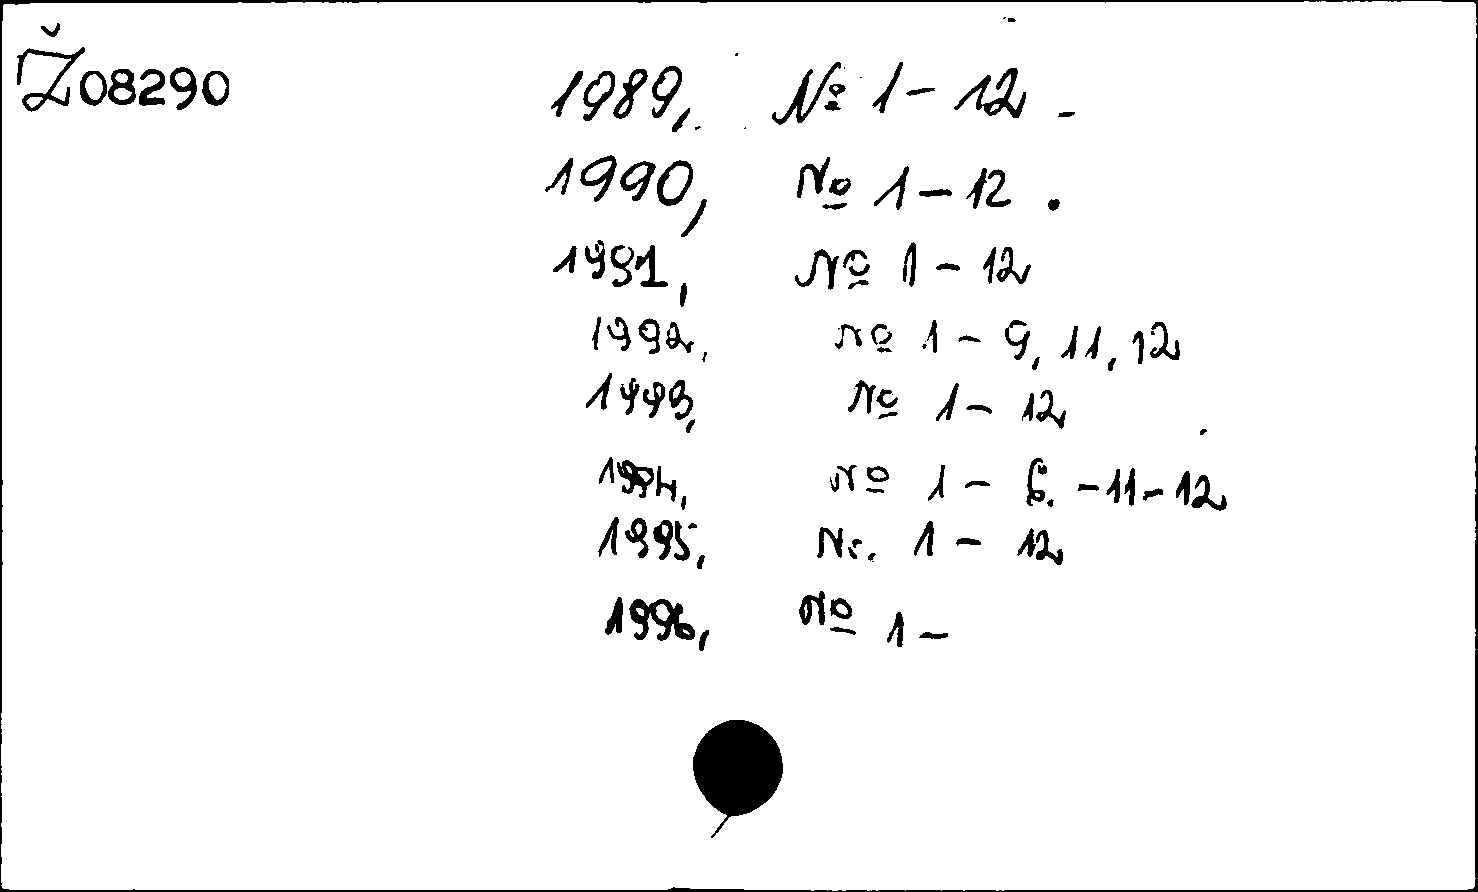 Ž08290
1989, № 1 - 12 -
1990, № 1 - 12 .
1991, № 1 - 12
1992, № 1 - 9, 11, 12
1993, № 1 - 12
1994, № 1 - 6. - 11 - 12
1995, Nr. 1 - 12
1996, № 1 -